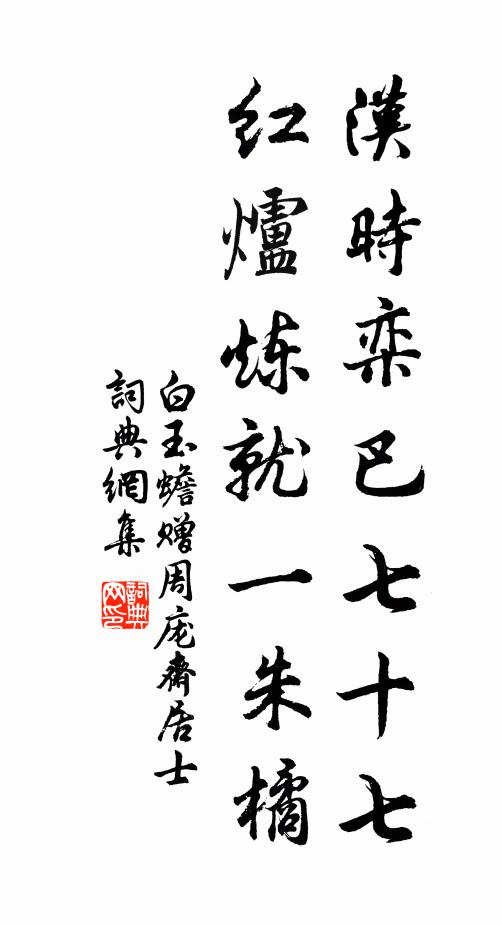 漢時栾巴七十七
红爐炼就一朱橘
白玉蟾赠周庞齋居士
詞典網集
詞典网印